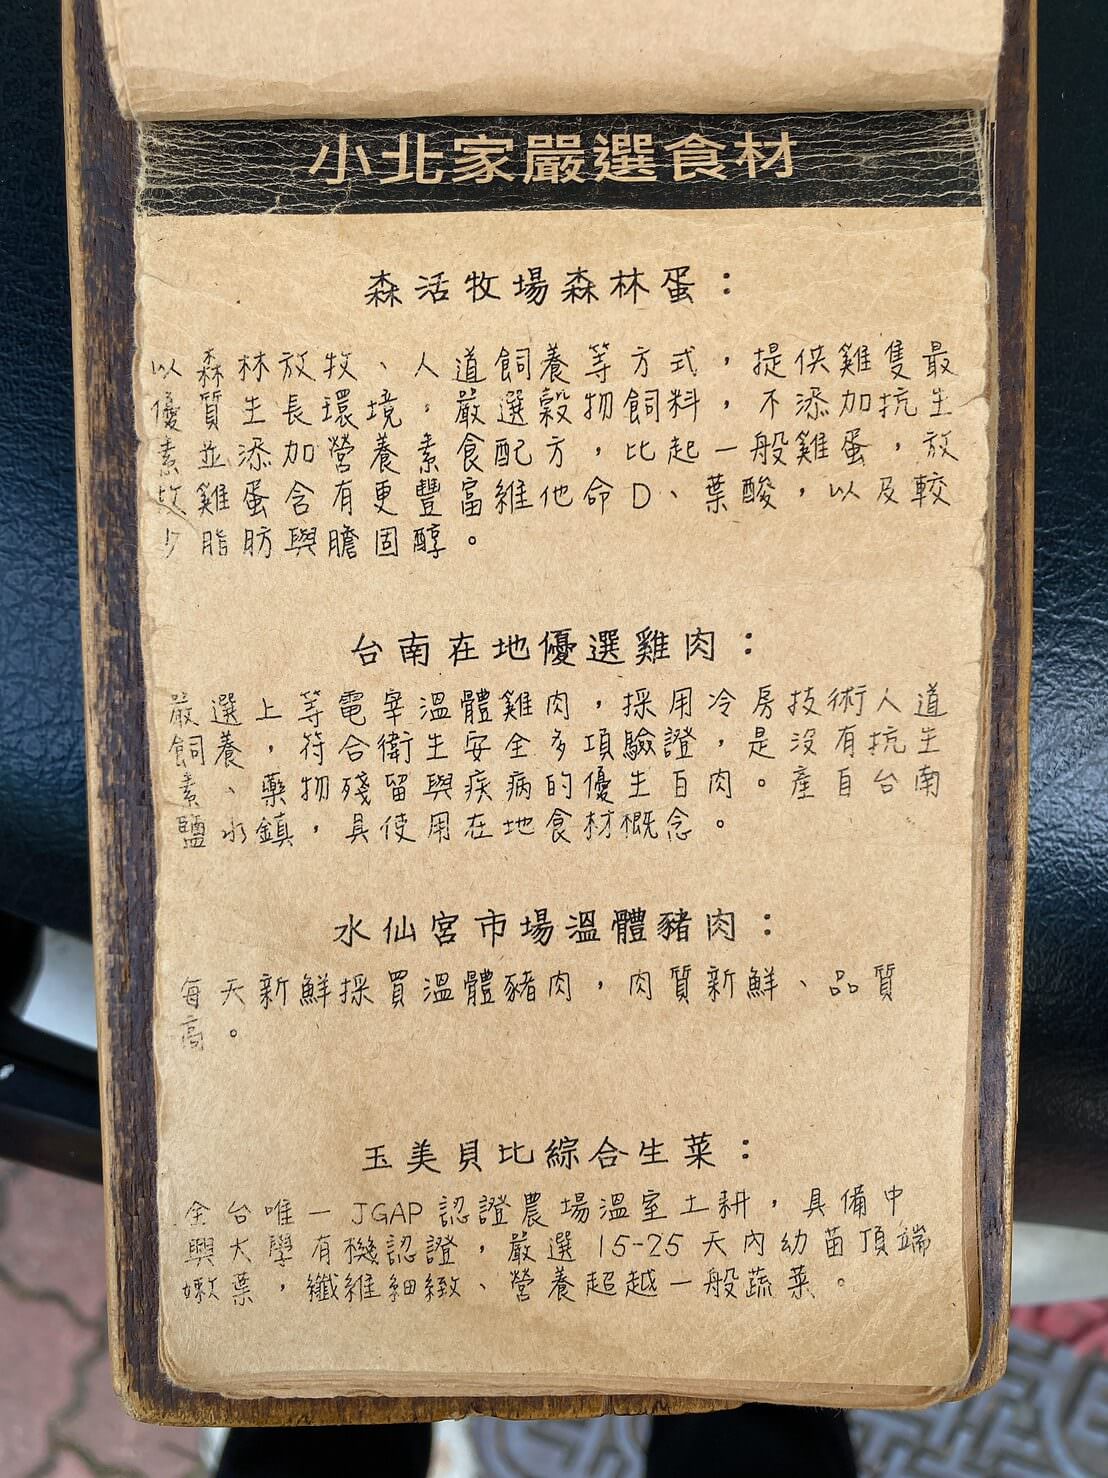 小北家嚴選食材
森活牧場森林蛋：
以森林放牧、人道飼養等方式，提供雞隻最
優質生長環境。嚴選穀物飼料，不添加抗生
素並添加營養素食配方，比起一般雞蛋，放
牧雞蛋含有更豐富維他命D、葉酸，以及較
少脂肪與膽固醇。
台南在地優選雞肉：
嚴選上等電宰溫體雞肉，採用冷房技術人道
飼養，符合衛生安全多項驗證，是沒有抗生
素、藥物殘留與疾病的優生百肉。產自台南
鹽水鎮，具使用在地食材概念。
水仙宮市場溫體豬肉：
每天新鮮採買溫體豬肉，肉質新鮮、品質
高。
玉美貝比綜合生菜：
全台唯一JGAP認證農場溫室土耕，具備中
興大學有機認證，嚴選15-25天內幼苗頂端
嫩葉，纖維細緻、營養超越一般蔬菜。